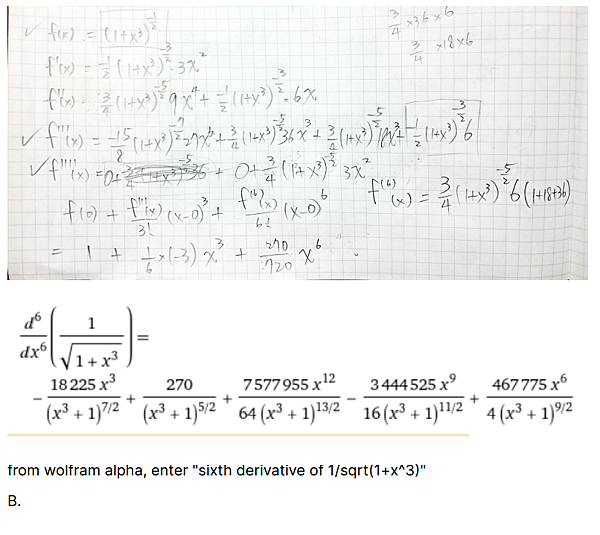 f(x) = (1+x³)^(-1/2)
3/4 ×36×6
f'(x) = -1/2 (1+x³)^(-3/2) · 3x²
3/4 ×18×6
f''(x) = 3/4 (1+x³)^(-5/2) 9x⁴ + -1/2 (1+x³)^(-3/2) · 6x
f'''(x) = -15/8 (1+x³)^(-7/2) 27x⁶ + 3/4 (1+x³)^(-5/2) 36x³ + 3/4 (1+x³)^(-5/2) 18x³ + -1/2 (1+x³)^(-3/2) 6
f''''(x) = 0+ + 0+ 3/4 (1+x³)^(-5/2) 3x²
f⁽⁶⁾(x) = 3/4 (1+x³)^(-5/2) 6 (1+18+36)
f(0) + f'''(x)/3! (x-0)³ + f⁽⁶⁾(x)/6! (x-0)⁶
= 1 + 1/6 ×(-3) x³ + 270/720 x⁶
d⁶/dx⁶ (1/√(1 + x³)) =
- 18 225 x³/(x³ + 1)^(7/2) + 270/(x³ + 1)^(5/2) + 7 577 955 x¹²/(64 (x³ + 1)^(13/2)) - 3 444 525 x⁹/(16 (x³ + 1)^(11/2)) + 467 775 x⁶/(4 (x³ + 1)^(9/2))
from wolfram alpha, enter "sixth derivative of 1/sqrt(1+x^3)"
B.